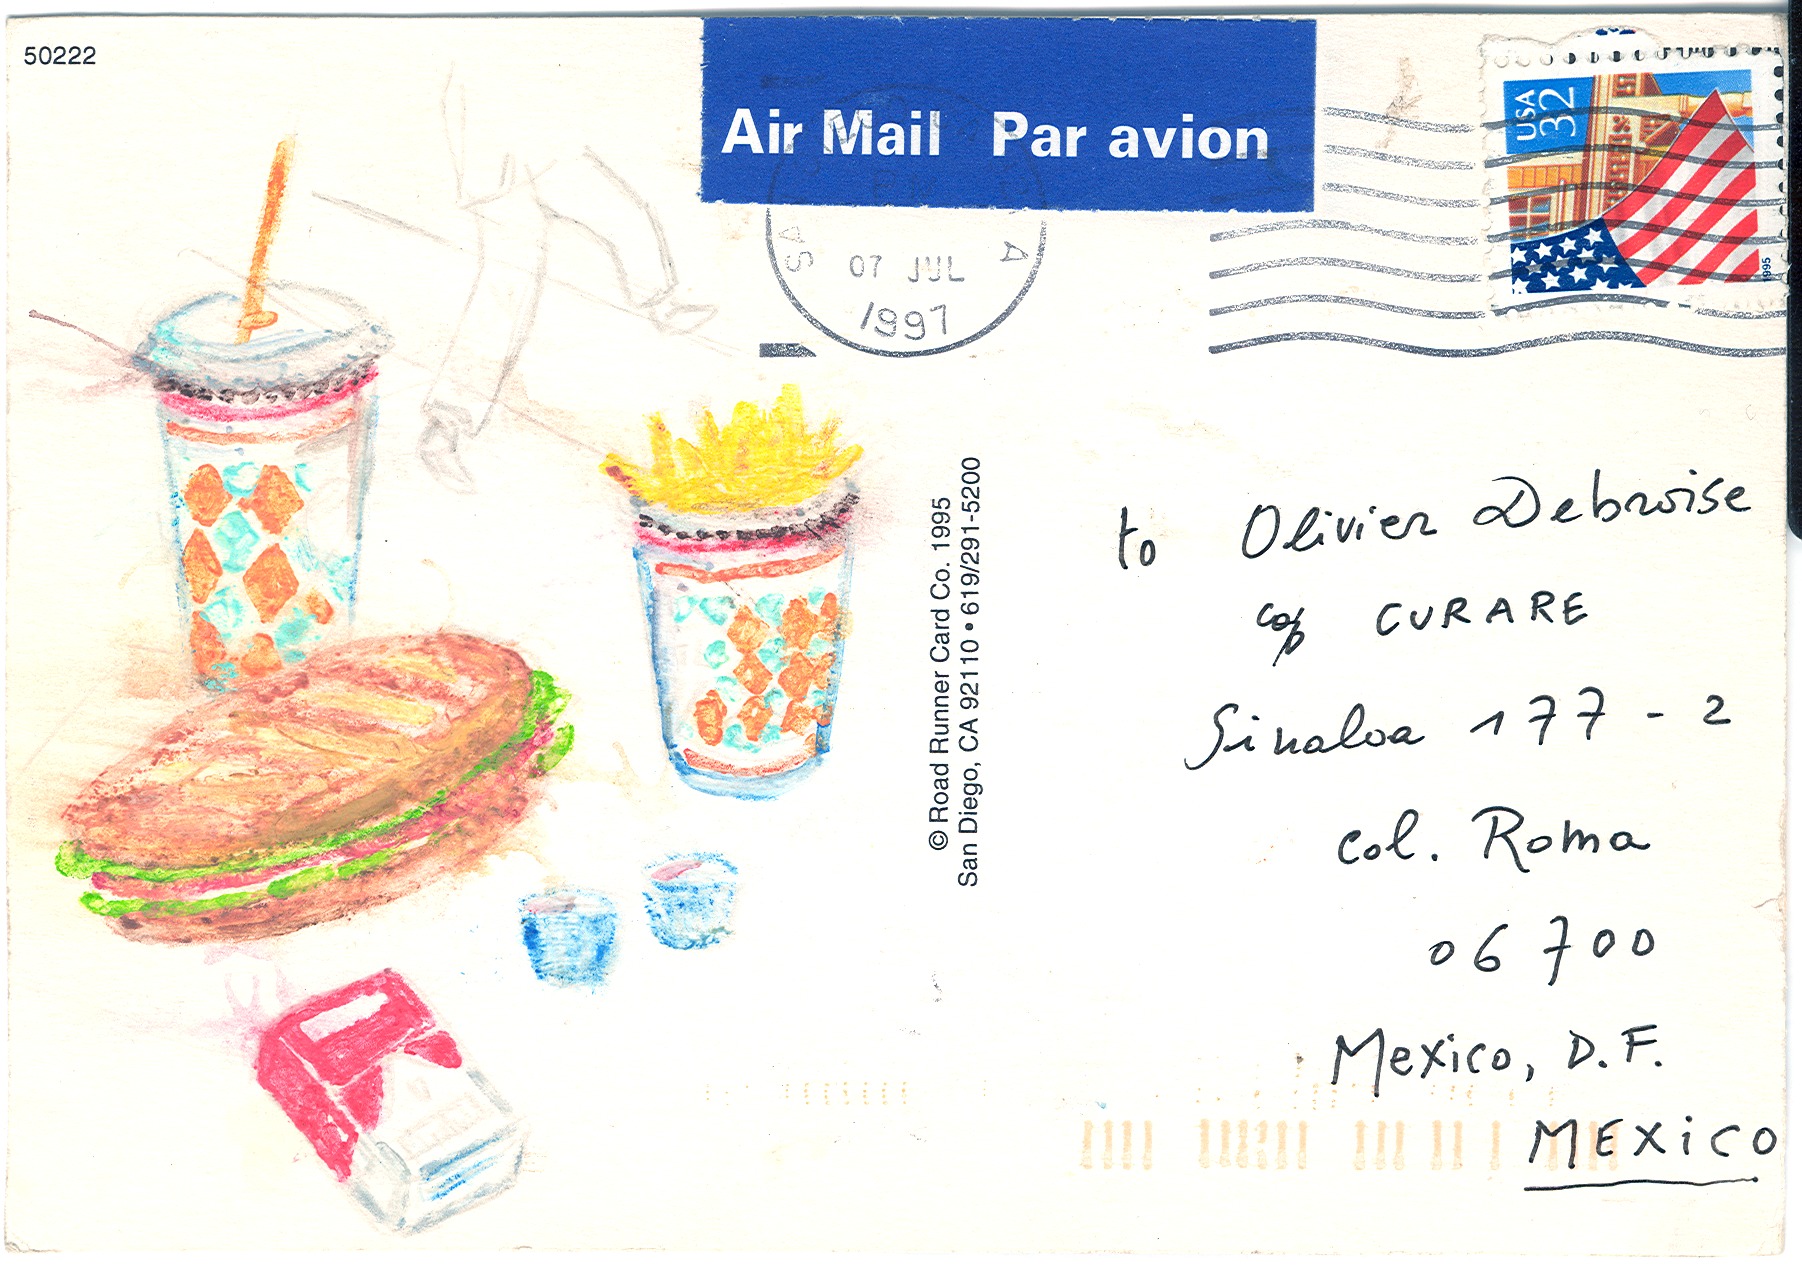 50222
Air Mail Par avion
USA
32
1995
07 JUL
1997
© Road Runner Card Co. 1995
San Diego, CA 92110 • 619/291-5200
to Olivier Debroise
CURARE
Sinaloa 177 - 2
col. Roma
06 700
Mexico, D.F.
MEXiCO